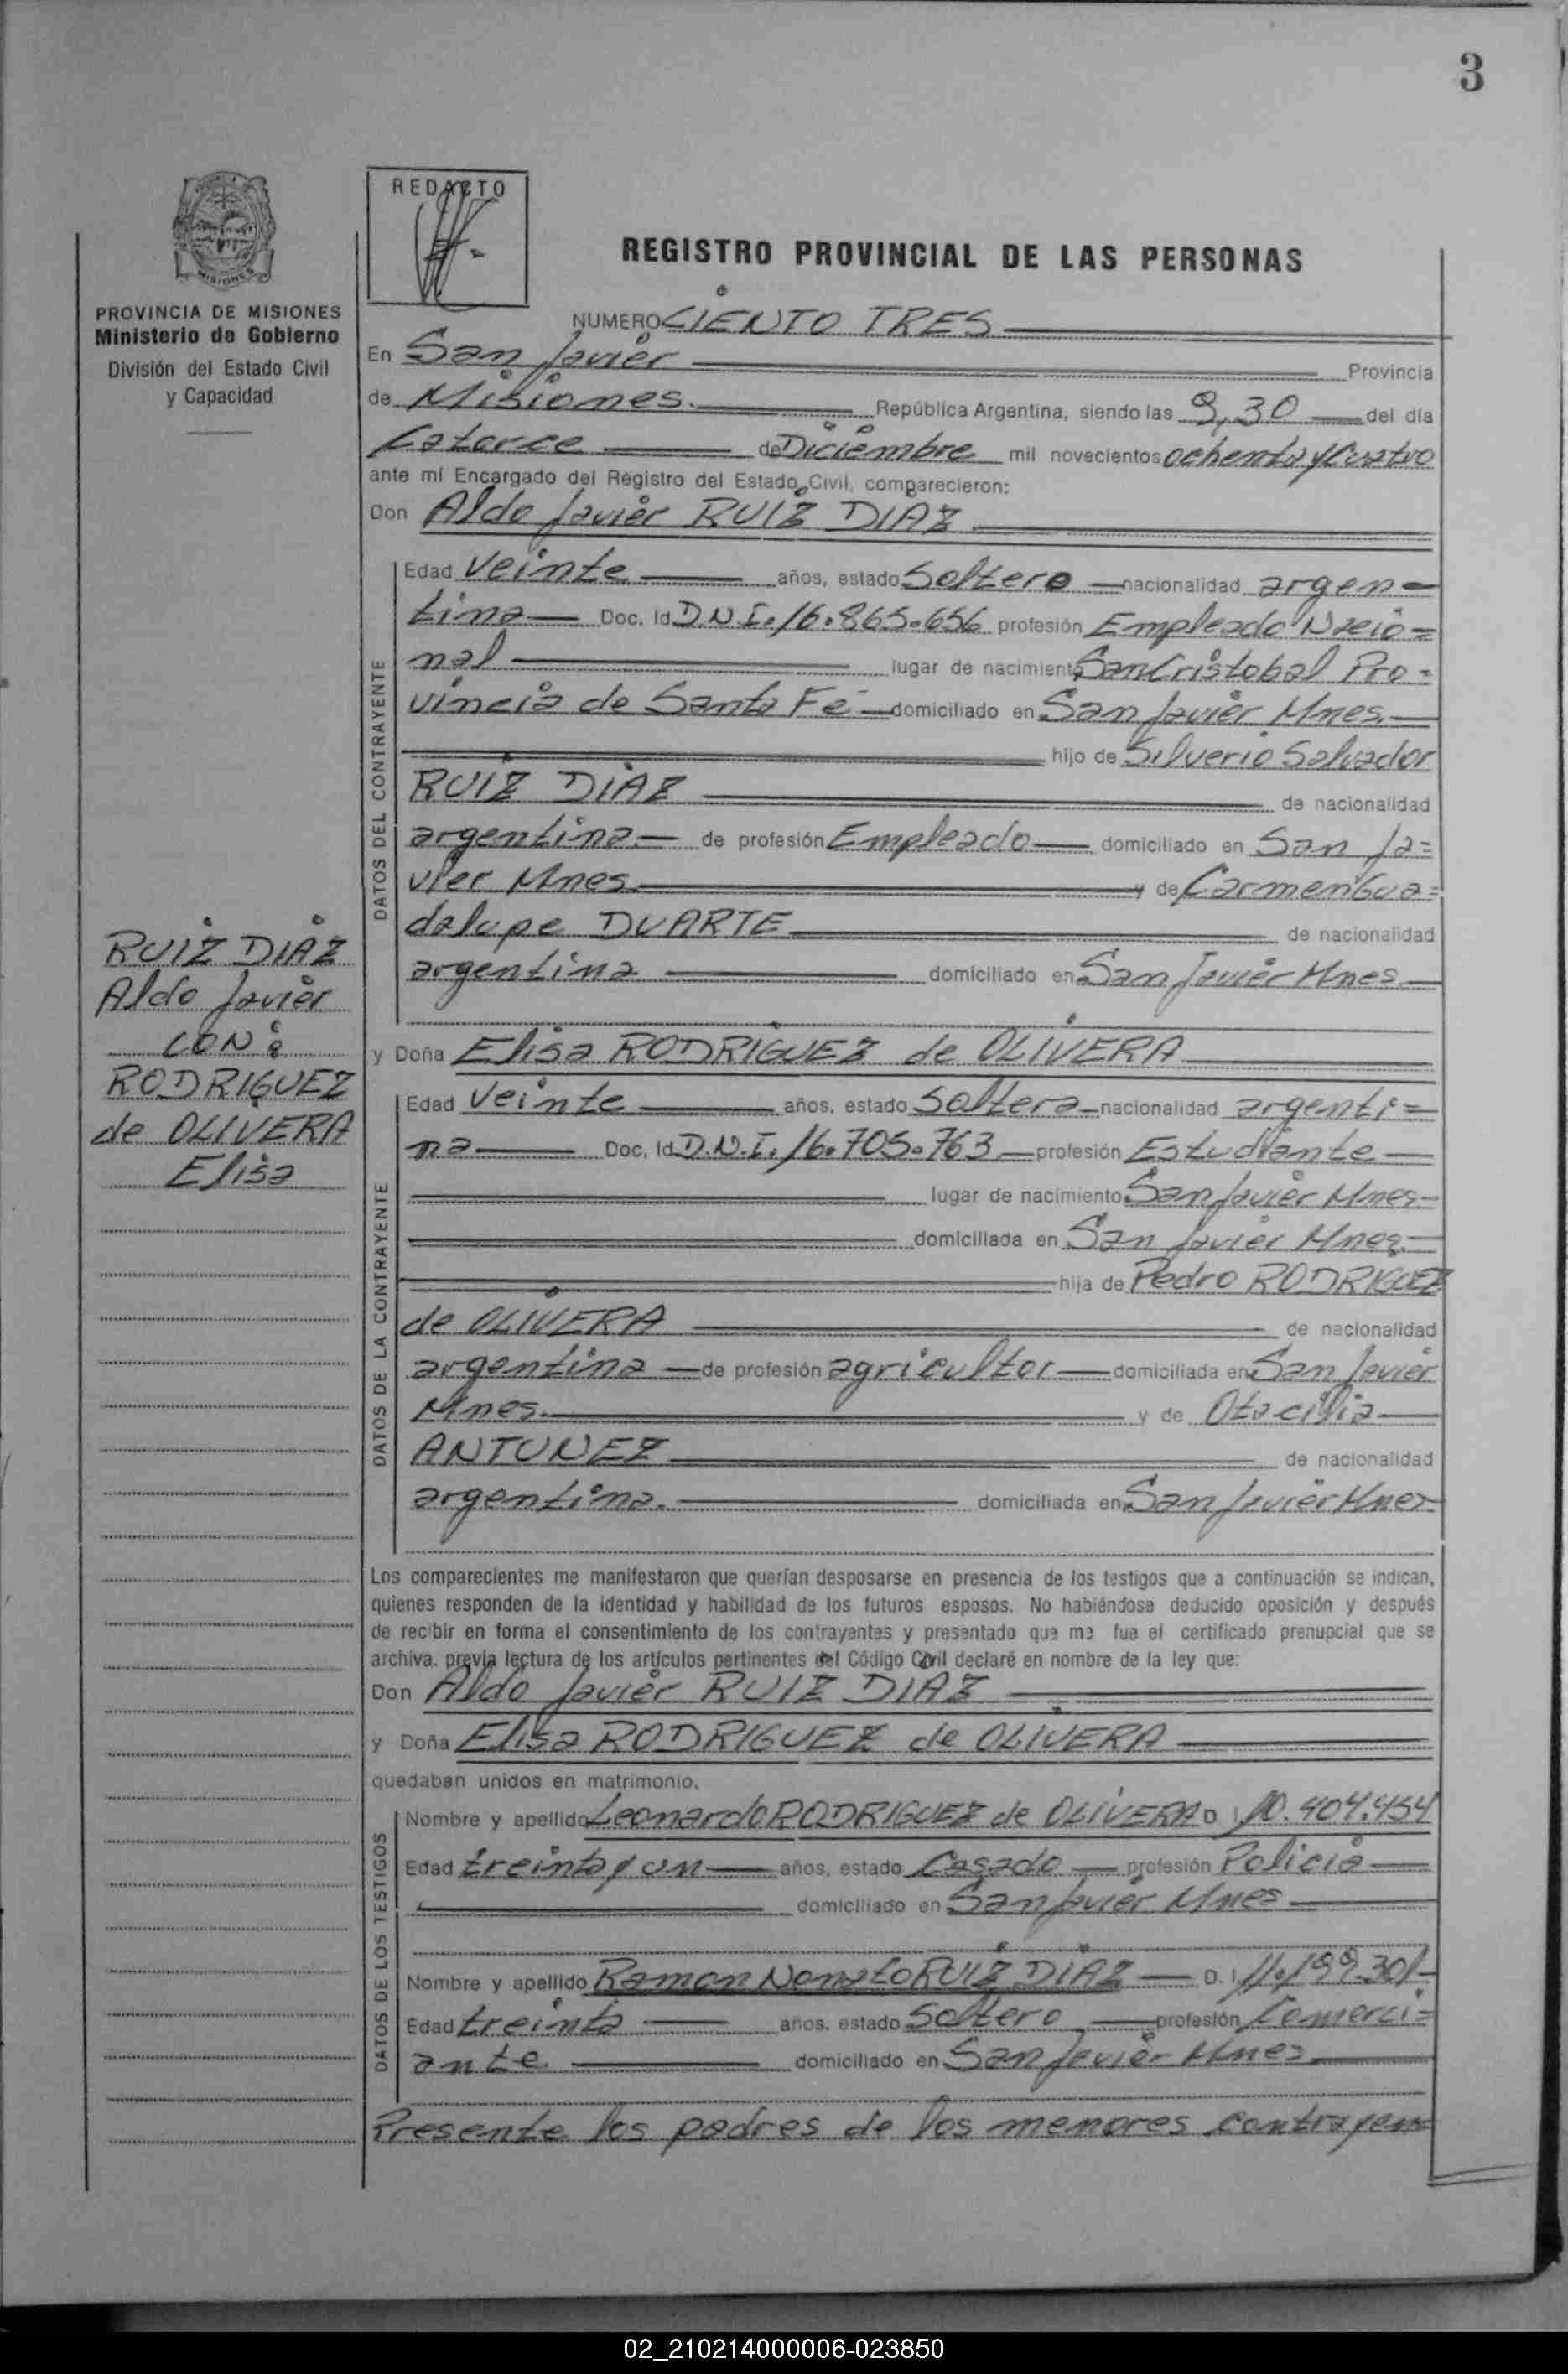 3
REDACTO
REGISTRO PROVINCIAL DE LAS PERSONAS
MISIONES
PROVINCIA DE MISIONES
Ministerio de Gobierno
División del Estado Civil
y Capacidad
NUMERO CIENTO TRES
En San Javier Provincia
de Misiones. República Argentina, siendo las 9,30 del día
Catorce de Diciembre mil novecientos ochenta y Cuatro
ante mí Encargado del Registro del Estado Civil, comparecieron:
Don Aldo Javier RUIZ DIAZ
DATOS DEL CONTRAYENTE
Edad Veinte años, estado Soltero nacionalidad argen-
tina Doc. Id. D.N.I. 16.865.656 profesión Empleado Nacio=
nal lugar de nacimiento San Cristobal Pro-
vincia de Santa Fé domiciliado en San Javier Mnes.
hijo de Silverio Salvador
RUIZ DIAZ de nacionalidad
argentina de profesión Empleado domiciliado en San Ja=
vier Mnes y de Carmen Gua=
dalupe DUARTE de nacionalidad
argentina domiciliado en San Javier Mnes
RUIZ DIAZ
Aldo Javier
CON:
RODRIGUEZ
de OLIVERA
Elisa
y Doña Elisa RODRIGUEZ de OLIVERA
DATOS DE LA CONTRAYENTE
Edad Veinte años, estado Soltera nacionalidad argenti=
na Doc. Id. D.N.I. 16.705.763 profesión Estudiante
lugar de nacimiento San Javier Mnes
domiciliada en San Javier Mnes.
hija de Pedro RODRIGUEZ
de OLIVERA de nacionalidad
argentina de profesión agricultor domiciliada en San Javier
Mnes. y de Otacilia
ANTUNEZ de nacionalidad
argentina. domiciliada en San Javier Mnes
Los comparecientes me manifestaron que querían desposarse en presencia de los testigos que a continuación se indican,
quienes responden de la identidad y habilidad de los futuros esposos. No habiéndose deducido oposición y después
de recibir en forma el consentimiento de los contrayentes y presentado que me fue el certificado prenupcial que se
archiva, previa lectura de los artículos pertinentes del Código Civil declaré en nombre de la ley que:
Don Aldo Javier RUIZ DIAZ
y Doña Elisa RODRIGUEZ de OLIVERA
quedaban unidos en matrimonio.
DATOS DE LOS TESTIGOS
Nombre y apellido Leonardo RODRIGUEZ de OLIVERA D.I. 10.404.454
Edad treinta y un años, estado Casado profesión Policia
domiciliado en San Javier Mnes
Nombre y apellido Ramon Nonato RUIZ DIAZ D.I. 11.199.301
Edad treinta años, estado Soltero profesión Comerci=
ante domiciliado en San Javier Mnes
Presente los padres de los menores contrayen=
02_210214000006-023850